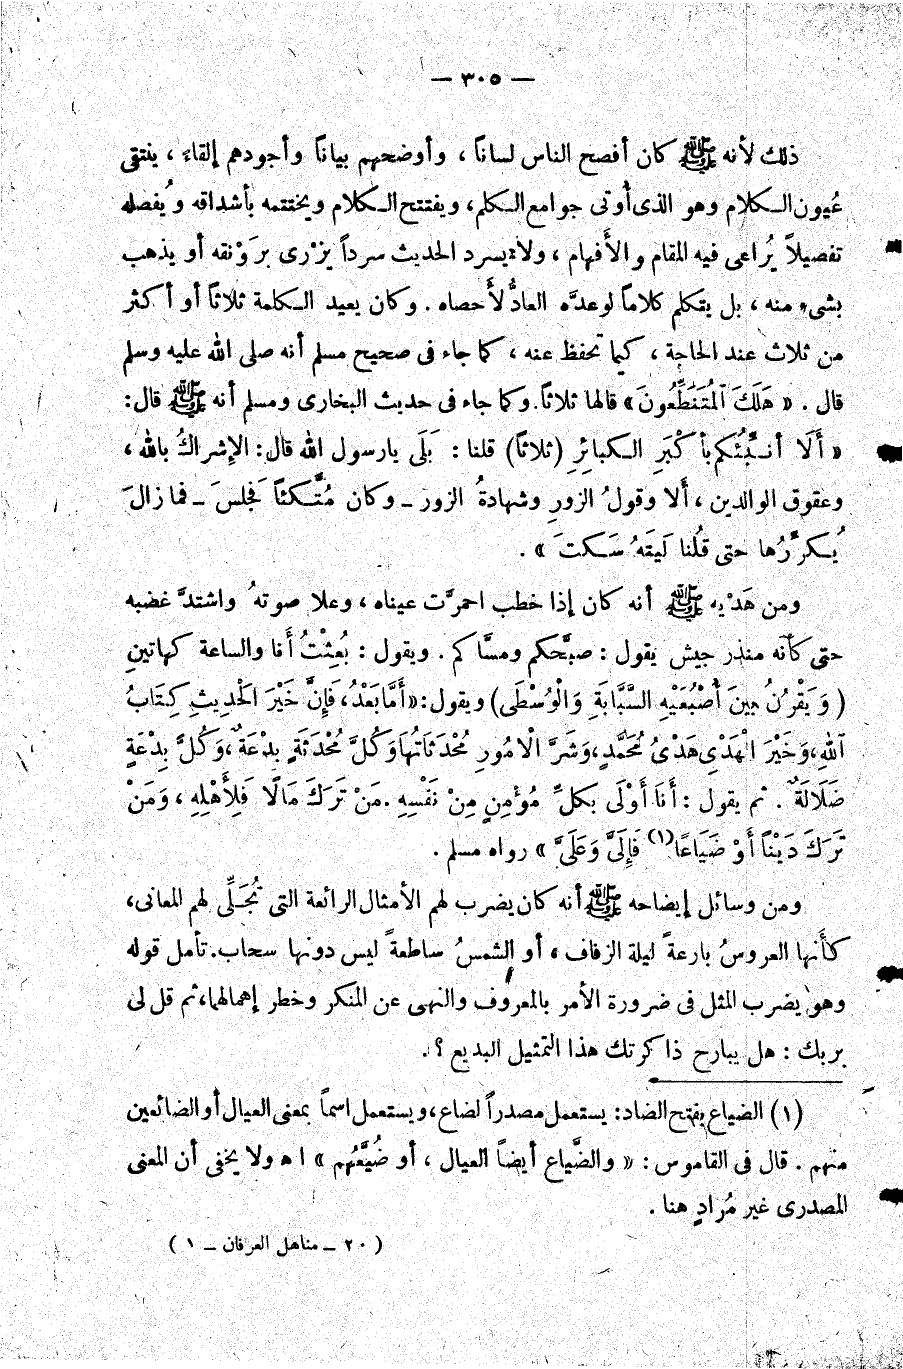 — ٣٠٥ —
ذلك لأنه ﷺ كان أفصح الناس لساناً ، وأوضحهم بياناً وأجودهم إلقاءً ، ينتقى
عُيون الـكلام وهو الذى أُوتى جوامع الـكلم، ويفتتح الـكلام ويختتمه بأشداقه ويُفصله
تفصيلاً يُراعى فيه المقام والأفهام ، ولا يسرد الحديث سرداً يزْرى برَوْنقه أو يذهب
بشىء منه ، بل يتكلم كلاماً لو عدَّه العادُّ لأَحصاه . وكان يعيد الـكلمة ثلاثاً أو أكثر
من ثلاث عند الحاجة ، كيما تحفظ عنه ، كما جاء فى صحيح مسلم أنه صلى الله عليه وسلم
قال . « هَلَكَ الْمُتَنَطِّعُونَ» قالها ثلاثاً. وكما جاء فى حديث البخارى ومسلم أنه ﷺ قال:
« أَلَا أنـبِّئُكم بأَكْبَرِ الـكبائِرِ (ثلاثاً) قلنا : بَلَى يارسول الله قال: الإشراكُ بالله ،
وعقوق الوالدين ، أَلا وقولُ الزورِ وشهادةُ الزور ــ وكان مُتَّـكئاً فجلسَ ــ فما زالَ
يُـكرِّرُها حتى قُلنا لَيتَهُ سَـكتَ » .
ومن هَدْيِه ﷺ أنه كان إذا خطب احمرَّت عيناه ، وعلا صوتهُ واشتدَّ غضبه
حتى كأنه منذر جيش يقول : صبَّحكم ومسَّاكم . ويقول : بُعِثْتُ أَنا والساعة كهاتينِ
( وَيَقْرُنُ بينَ أُصْبُعَيْهِ السَّبَّابَةِ وَالْوُسْطَى) ويقول: «أَمَّا بَعْدُ، فَإِنَّ خَيْرَ الْحَدِيثِ كِتَابُ
اللهِ، وَخَيْرَ الْهَدْىِ هَدْىُ مُحَمَّدٍ، وَشَرَّ الْامُورِ مُحْدَثَاتُهَا وَكُلَّ مُحْدَثَةٍ بِدْعَةٌ، وَكُلَّ بِدْعَةٍ
ضَلَالَةٌ . ثم يقول : أَنَا أَوْلَى بكلِّ مُؤْمِنٍ مِنْ نَفْسِهِ . مَنْ تَرَكَ مَالًا فَلِأَهْلِهِ ، وَمَنْ
تَرَكَ دَيْنًا أَوْ ضَيَاعًا(١) فَإِلَىَّ وَعَلَىَّ » رواه مسلم .
ومن وسائل إيضاحه ﷺ أنه كان يضرب لهم الأمثال الرائعة التى تُجَـلِّى لهم المعانى،
كأنها العروسُ بارعةً ليلة الزفاف ، أو الشمسُ ساطعةً ليس دونها سحاب. تأمل قوله
وهو يضرب المثل فى ضرورة الأمر بالمعروف والنهى عن المنكر وخطر إهمالهما، ثم قل لى
بربك : هل يبارح ذاكرتك هذا التمثيل البديع ؟ .
(١) الضياع بفتح الضاد: يستعمل مصدراً لضاع، ويستعمل اسماً بمعنى العيال أو الضائعين
منهم . قال فى القاموس : « والضَّياع أيضاً العيال ، أو ضُيَّعُهم » ا ه ولا يخفى أن المعنى
المصدرى غير مُرادٍ هنا .
( ٢٠ ــ مناهل العرفان ــ ١ )